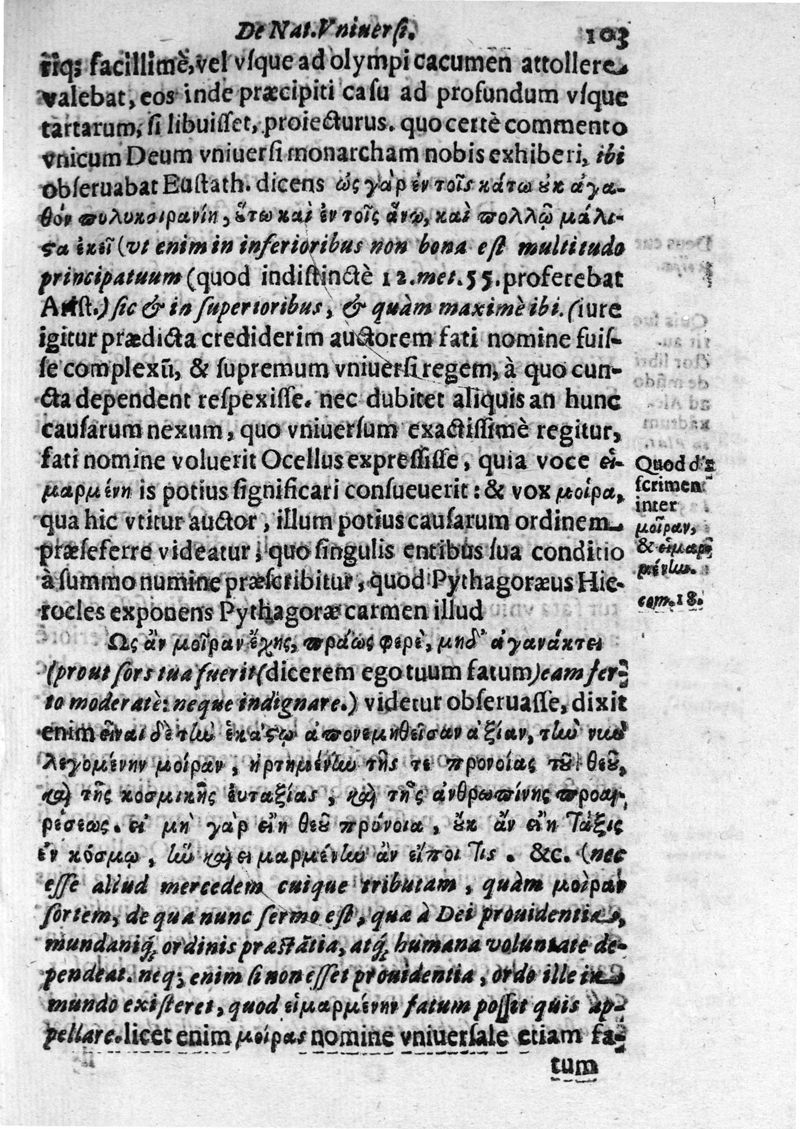 De Nat. Vniuersi. 103
riq; facillimè, vel vſque ad olympi cacumen attollere
valebat, eos inde præcipiti caſu ad profundum vſque
tartarum, ſi libuiſſet, proiecturus. quo certè commento
vnicum Deum vniuerſi monarcham nobis exhiberi, ibi
obſeruabat Euſtath. dicens ὡς γὰρ ἐν τοῖς κάτω ȣκ ἀγα-
θὸν πολυκοιρανίη, ȣ̔́τω καὶ ἐν τοῖς ἄνω, καὶ πολλῷ μάλι-
ϛα ἐκεῖ (vt enim in inferioribus non bona eſt multitudo
principatuum (quod indiſtinctè 12. met. 55. proferebat
Ariſt.) ſic & in ſuperioribus, & quàm maximè ibi. (iure
igitur prædicta crediderim auctorem fati nomine fuiſ-
ſe complexũ, & ſupremum vniuerſi regem, à quo cun-
cta dependent reſpexiſſe. nec dubitet aliquis an hunc
cauſarum nexum, quo vniuerſum exactiſſimè regitur,
fati nomine voluerit Ocellus expreſſiſſe, quia voce εἱ-
μαρμένη is potius ſignificari conſueuerit: & vox μοίρα,
qua hic vtitur auctor, illum potius cauſarum ordinem
præſeferre videatur, quo ſingulis entibus ſua conditio
à ſummo numine præſcribitur, quod Pythagoræus Hie-
rocles exponens Pythagoræ carmen illud
Ὡς ἂν μοῖραν ἔχῃς, πράως φερὲ, μηδ' ἀγανάκτει
(prout ſors tua fuerit (dicerem ego tuum fatum) eam fer-
to moderatè: neque indignare.) videtur obſeruaſſe, dixit
enim εἶναι δὲ τὼ ἑκάϛῳ ἀπονεμηθεῖσαν ἀξίαν, τὼ νῦν
λεγομένην μοῖραν, ἠρτημένὼ τῆς τε προνοίας τȣ͂ θεȣ͂,
καὶ τῆς κοσμικῆς ἐυταξίας, καὶ τῆς ἀνθρωπίνης προαι-
ρέσεως. εἰ μὴ γὰρ εἴη θεȣ͂ πρόνοια, ȣκ ἂν εἴη τάξις
ἐν κόσμῳ, ἣν καὶ ειμαρμένὼ ἂν εἴποι τις. &c. (nec
eſſe aliud mercedem cuique tributam, quàm μοῖραν
ſortem, de qua nunc ſermo eſt, qua à Dei prouidentia,
mundaniq́; ordinis præſtãtia, atq́; humana voluntate de-
pendeat. neq; enim ſi non eſſet prouidentia, ordo ille in
mundo exiſteret, quod εἱμαρμένην fatum poſſet quis ap-
pellare. licet enim μοίρας nomine vniuerſale etiam fa-
tum
Quod di
ſcrimen
inter
μοῖραν,
& εἱμαρ
μένὼ.
com. 18.